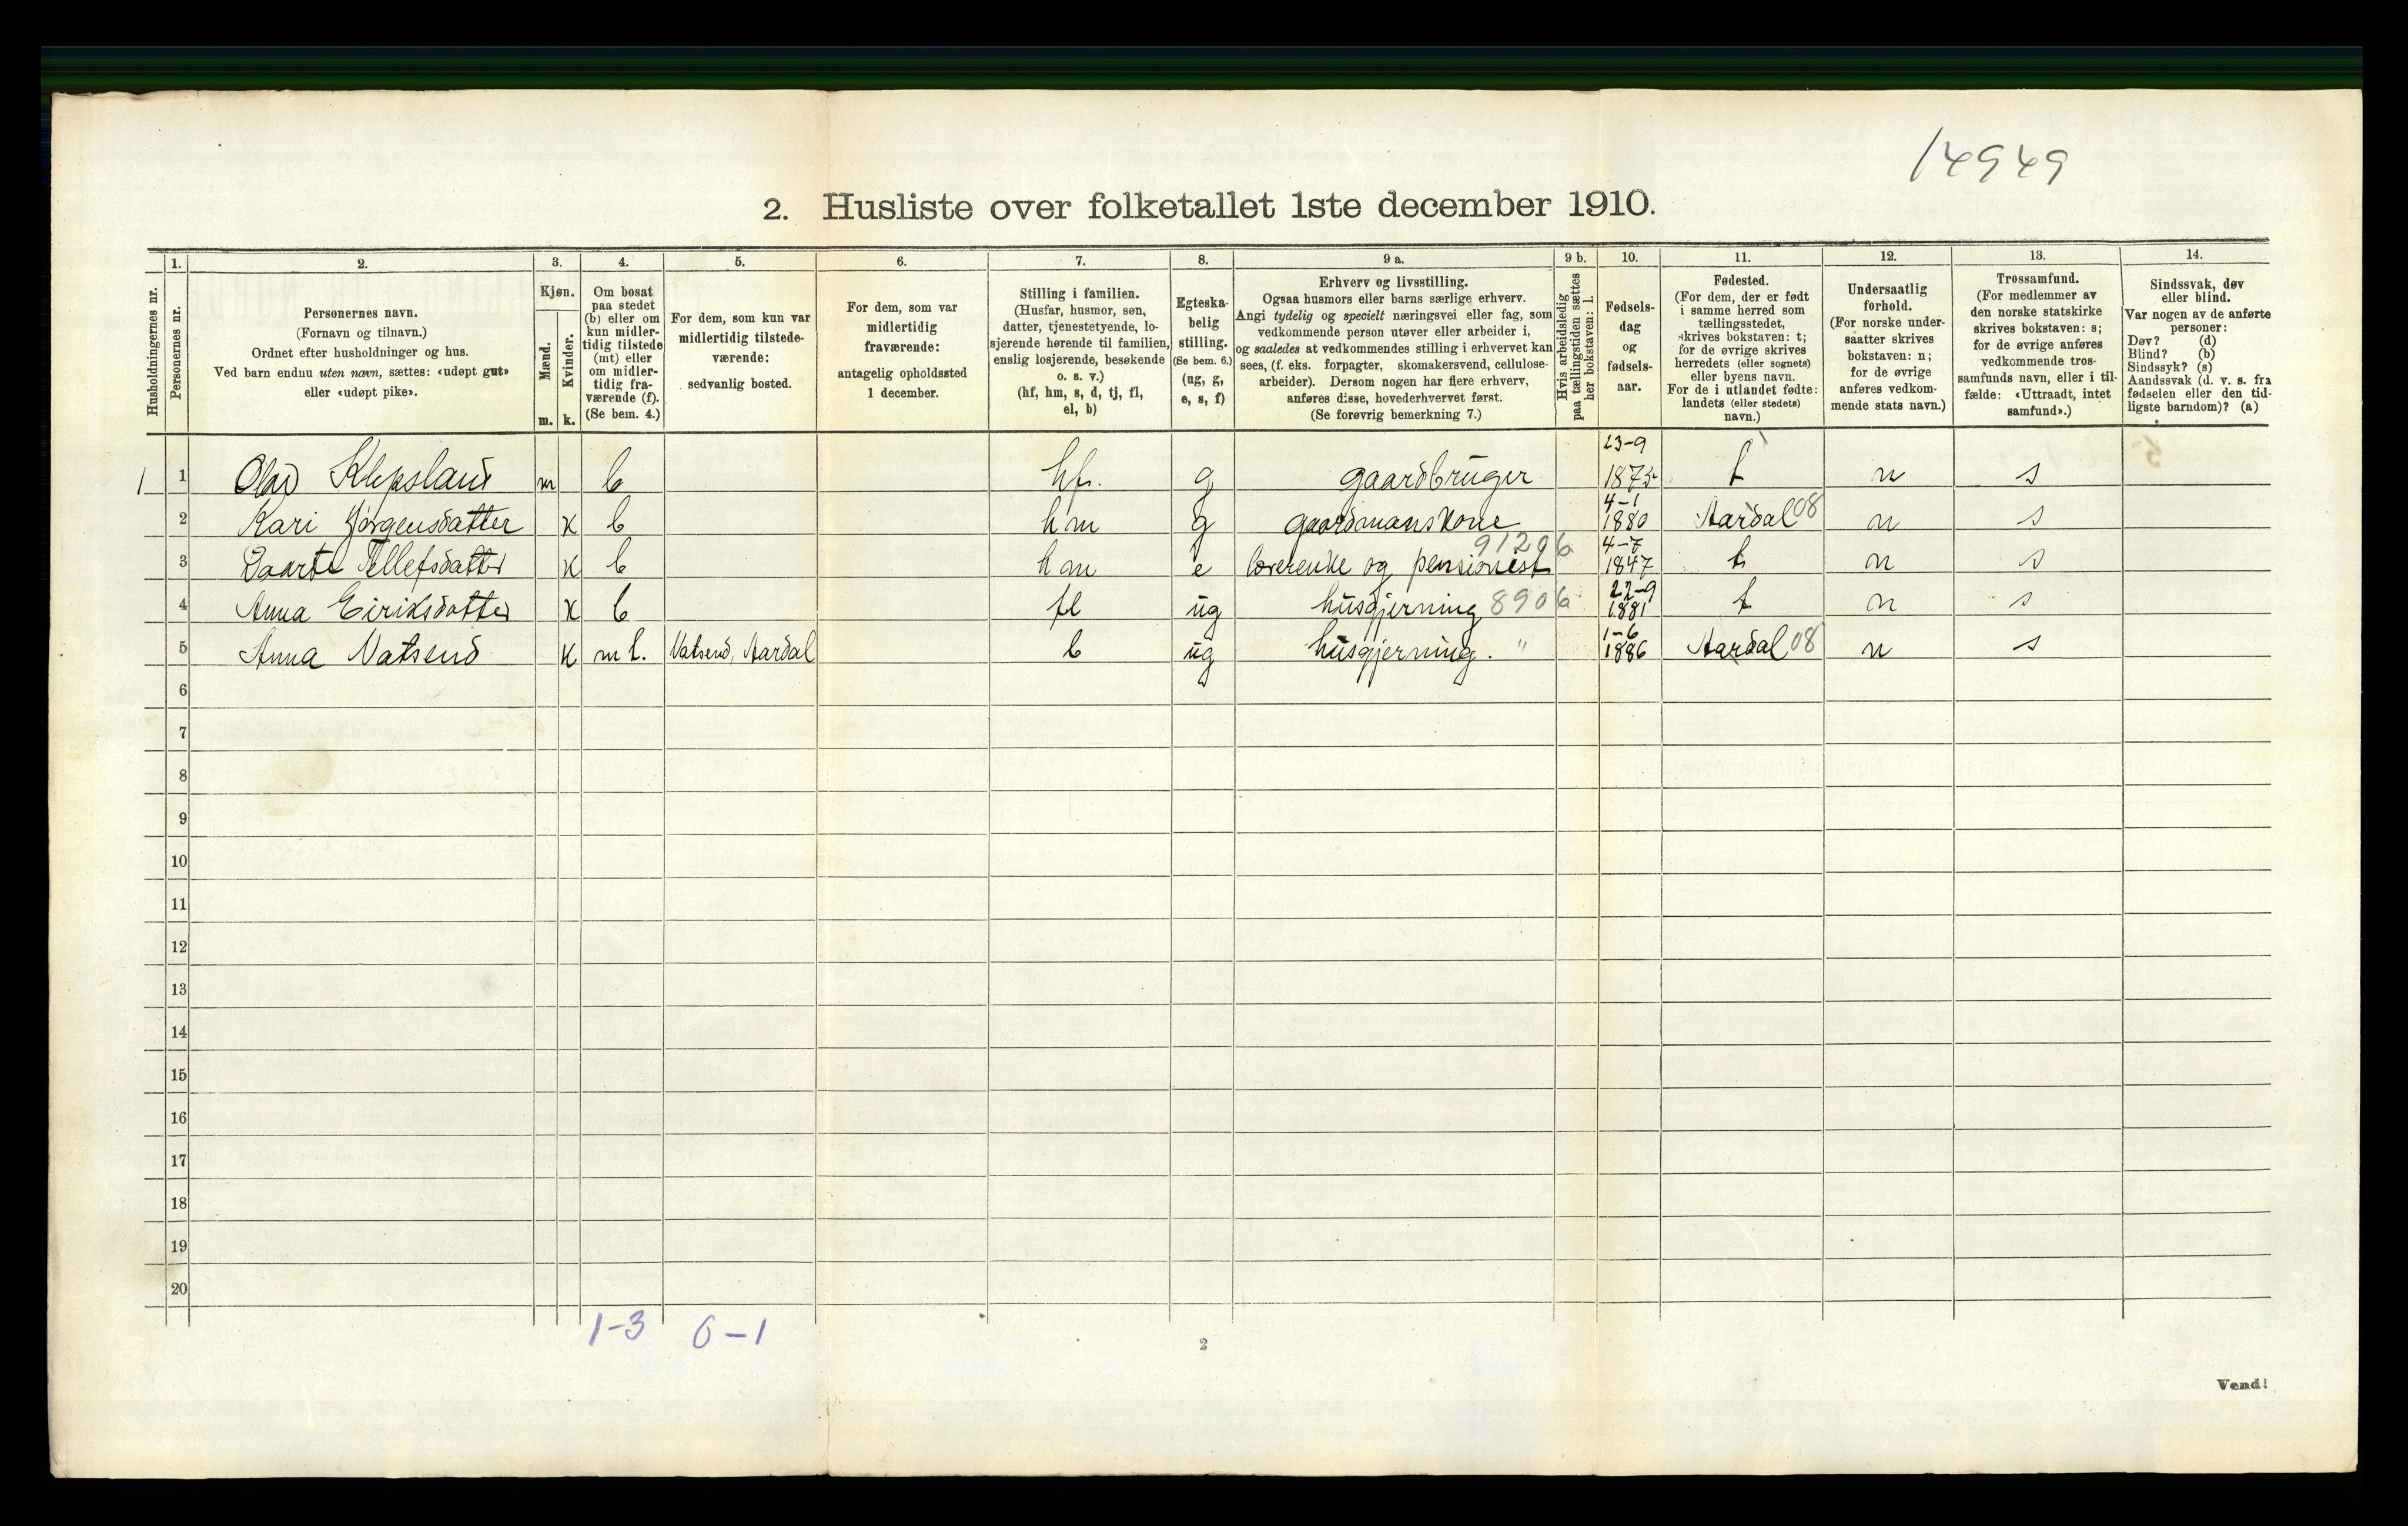 14949
2. Husliste over folketallet 1ste december 1910.
Husholdningernes nr.
1.
Personernes nr.
2.
Personernes navn.
(Fornavn og tilnavn.)
Ordnet efter husholdninger og hus.
Ved barn endnu uten navn, sættes: «udøpt gut»
eller «udøpt pike».
3.
Kjøn.
Mænd.
m.
Kvinder.
k.
4.
Om bosat
paa stedet
(b) eller om
kun midler-
tidig tilstede
(mt) eller
om midler-
tidig fra-
værende (f).
(Se bem. 4.)
5.
For dem, som kun var
midlertidig tilstede-
værende:
sedvanlig bosted.
6.
For dem, som var
midlertidig
fraværende:
antagelig opholdssted
1 december.
7.
Stilling i familien.
(Husfar, husmor, søn,
datter, tjenestetyende, lo-
sjerende hørende til familien,
enslig losjerende, besøkende
o. s. v.)
(hf, hm, s, d, tj, fl,
el, b)
8.
Egteska-
belig
stilling.
(Se bem. 6.)
(ug, g,
e, s, f)
9 a.
Erhverv og livsstilling.
Ogsaa husmors eller barns særlige erhverv.
Angi tydelig og specielt næringsvei eller fag, som
vedkommende person utøver eller arbeider i,
og saaledes at vedkommendes stilling i erhvervet kan
sees, (f. eks. forpagter, skomakersvend, cellulose-
arbeider). Dersom nogen har flere erhverv,
anføres disse, hovederhvervet først.
(Se forøvrig bemerkning 7.)
9 b.
Hvis arbeidsledig
paa tællingstiden sættes
her bokstaven: l.
10.
Fødsels-
dag
og
fødsels-
aar.
11.
Fødested.
(For dem, der er født
i samme herred som
tællingsstedet,
skrives bokstaven: t;
for de øvrige skrives
herredets (eller sognets)
eller byens navn.
For de i utlandet fødte:
landets (eller stedets)
navn.)
12.
Undersaatlig
forhold.
(For norske under-
saatter skrives
bokstaven: n;
for de øvrige
anføres vedkom-
mende stats navn.)
13.
Trossamfund.
(For medlemmer av
den norske statskirke
skrives bokstaven: s;
for de øvrige anføres
vedkommende tros-
samfunds navn, eller i til-
fælde: «Uttraadt, intet
samfund».)
14.
Sindssvak, døv
eller blind.
Var nogen av de anførte
personer:
Døv? (d)
Blind? (b)
Sindssyk? (s)
Aandssvak (d. v. s. fra
fødselen eller den tid-
ligste barndom)? (a)
1 1 Olav Klepsland m b hf. g gaardbruger 23-9 1875 t n s
2 Kari Jørgensdatter k b hm g gaardmanskone 4-1 1880 Aardal 08 n s
3 Tellefsdatter k b hm e og pensionist 9129b 4-7 1847 t n s
4 Anna Eiriksdatter k b fl ug husgjerning 890b 22-9 1881 t n s
5 Anna Natsend k mt. Vatsend, Aardal b ug husgjerning. " 1-6 1886 Aardal 08 n s
6
7
8
9
10
11
12
13
14
15
16
17
18
19
20
1-3 0-1
2
Vend!